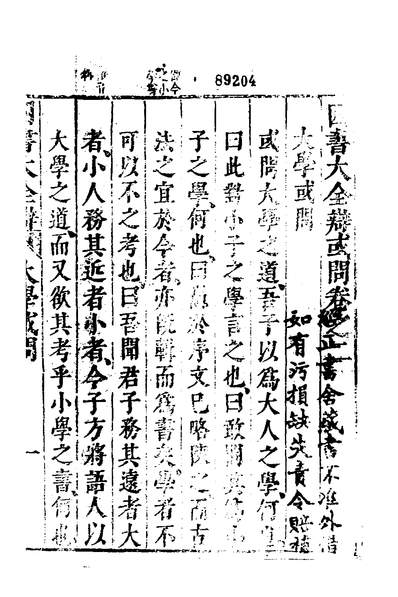 89204
四書大全辯或問卷之
正書舍藏書不准外借
如有污損缺失責令賠補
大學或問
或問大學之道吾子以爲大人之學何也
曰此對小子之學言之也曰敢問其
子之學何也曰於序文已略陳之而古
法之宜於今者亦旣輯而爲書矣學者不
可以不之考也曰吾聞君子務其遠者大
者小人務其近者小者今子方將語人以
大學之道而又欲其考乎小學之書何也
四書大全辯 大學或問 一